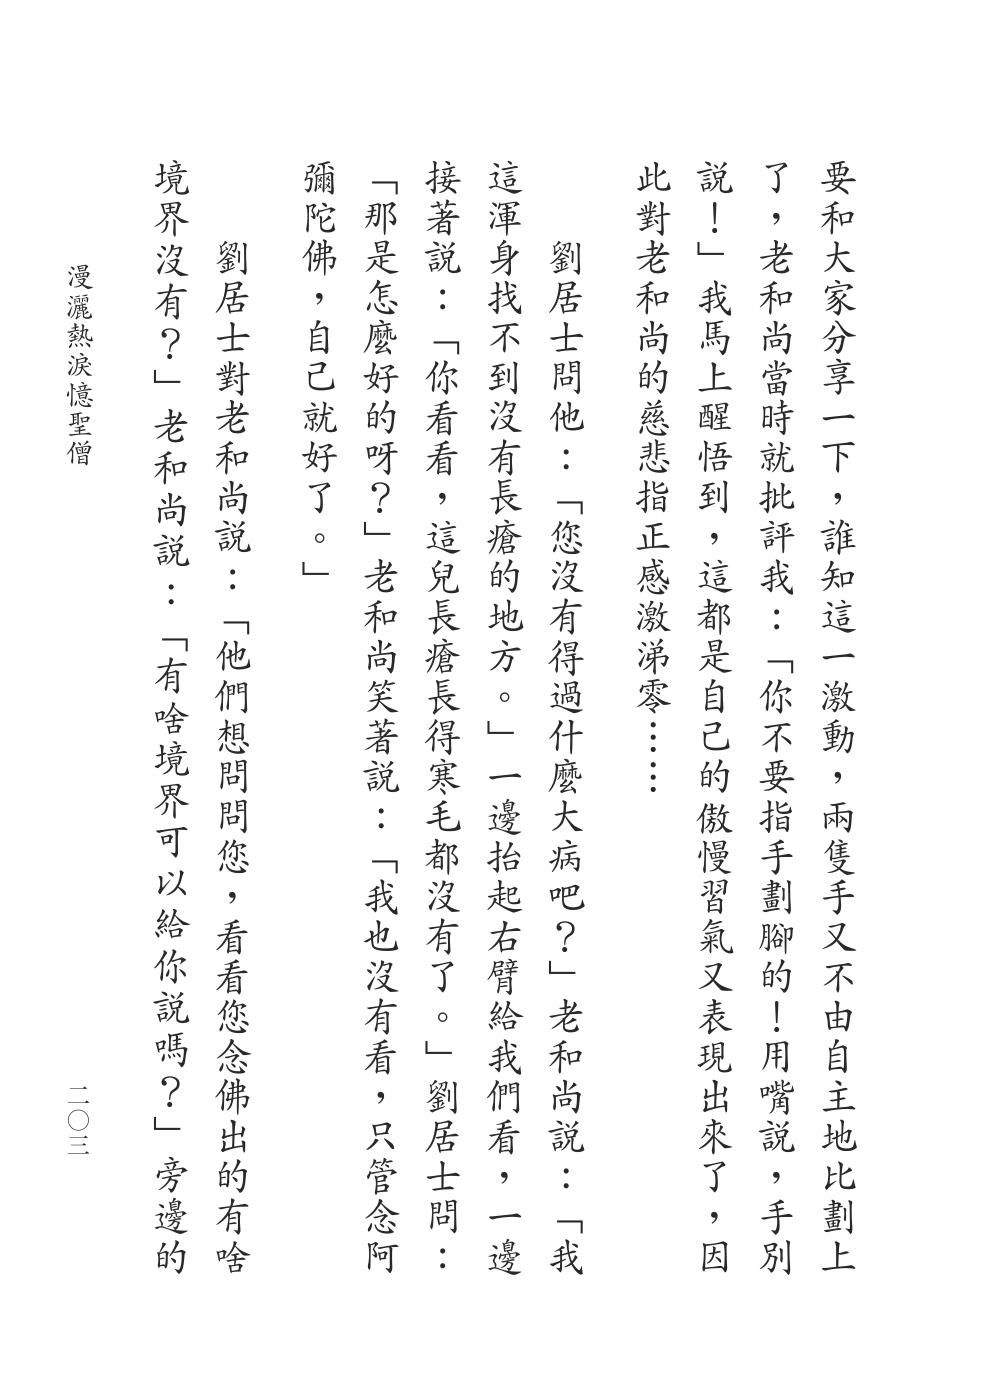 要和大家分享一下，誰知這一激動，兩隻手又不由自主地比劃上
了，老和尚當時就批評我：「你不要指手劃腳的！用嘴說，手別
說！」我馬上醒悟到，這都是自己的傲慢習氣又表現出來了，因
此對老和尚的慈悲指正感激涕零……
劉居士問他：「您沒有得過什麼大病吧？」老和尚說：「我
這渾身找不到沒有長瘡的地方。」一邊抬起右臂給我們看，一邊
接著說：「你看看，這兒長瘡長得寒毛都沒有了。」劉居士問：
「那是怎麼好的呀？」老和尚笑著說：「我也沒有看，只管念阿
彌陀佛，自己就好了。」
劉居士對老和尚說：「他們想問問您，看看您念佛出的有啥
境界沒有？」老和尚說：「有啥境界可以給你說嗎？」旁邊的
漫灑熱淚憶聖僧
二〇三